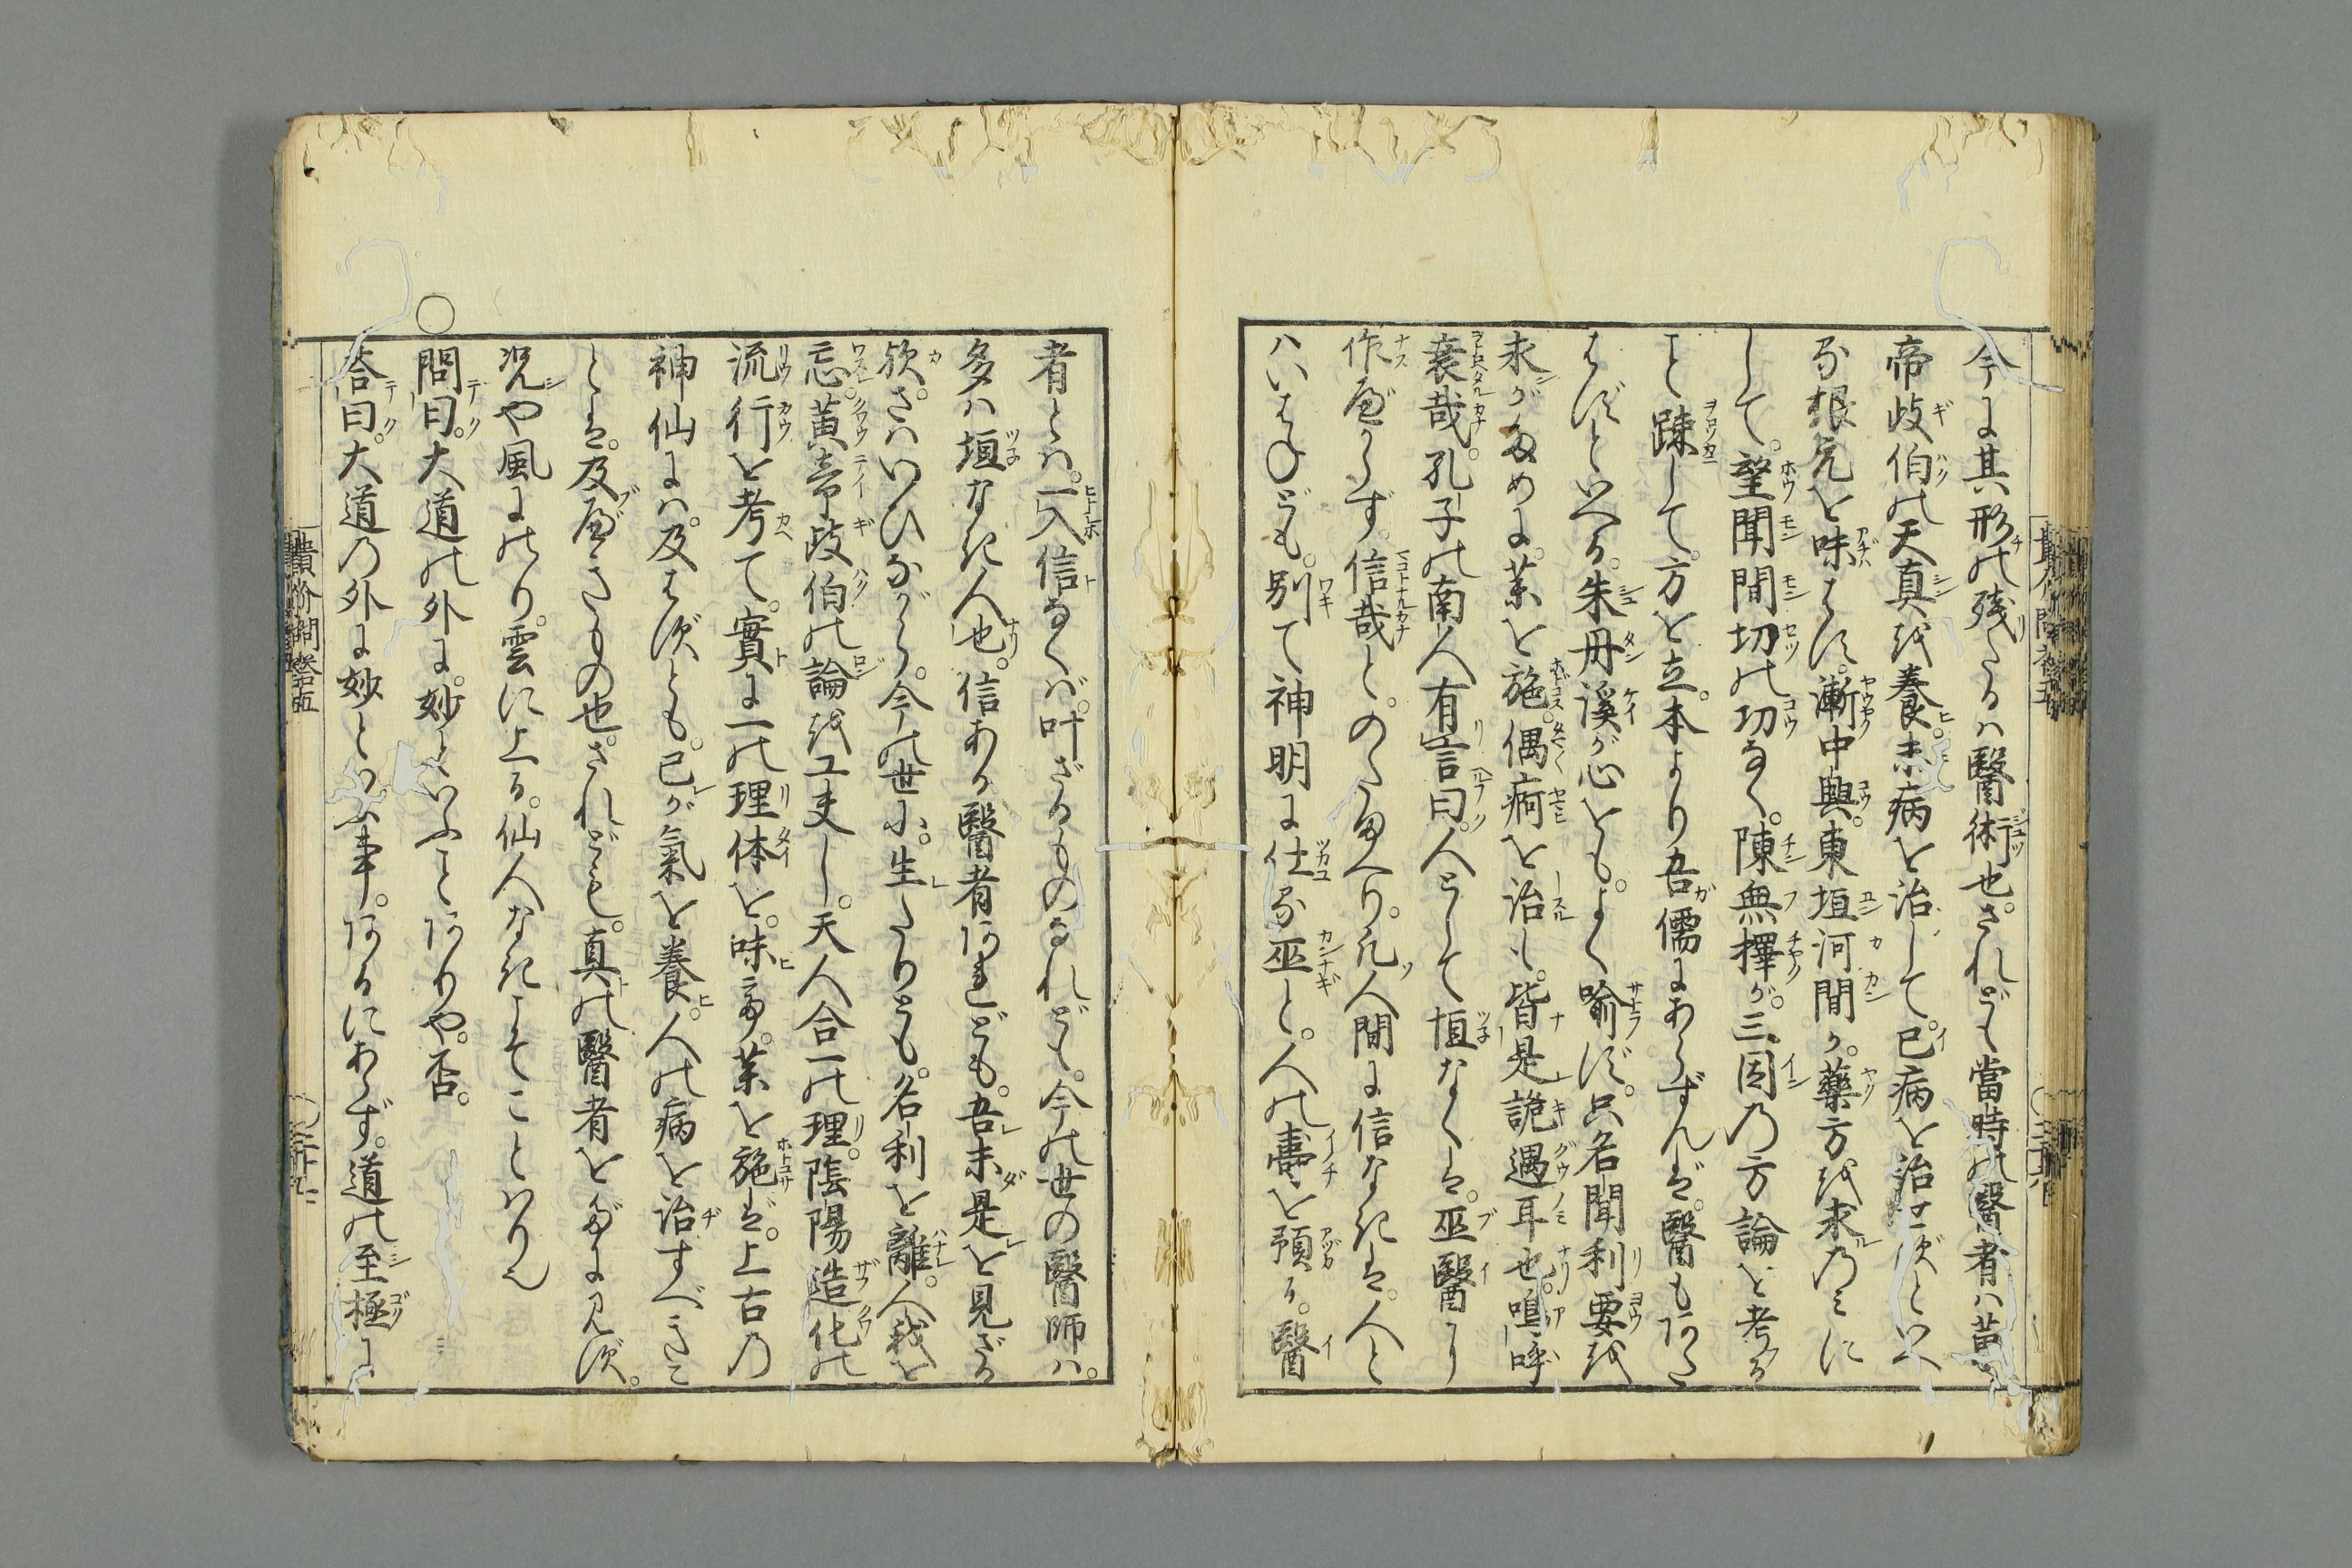 今に其形の残たるハ醫術也。されども當時の醫者ハ黄
帝岐伯の天真を養。未病を治して。已病を治せずといへ
る根元を味はず。漸中興。東垣河間が。藥方を求のミに
して。望聞問切の切なく。陳無擇が。三因の方論を考る
こと踈して。方を立。本より吾儒にあらずんば。醫もあた
はずといへる。朱丹溪が心をも。よく喩ず。只名聞利要を
求がために。薬を施。偶痾を治も。皆是詭遇耳也。嗚呼
衰哉。孔子の南人有言曰。人として恒なくば。巫醫に
作べからず。信哉と。のたまへり。凡人間に信なきば。人と
ハいはねども。別て神明に仕る巫と。人の壽を預る。醫
者とハ。一入信なくば。叶ざるものなれども。今の世の醫師ハ。
多ハ垣なき人也。信ある醫者あれども。吾未是を見ざる
歟。さハいひながら。今の世に。生たりとも。名利を離。人我を
忘。黄帝岐伯の論を工夫し。天人合一の理。陰陽造化の
流行を考て。實に一の理体を。味へ而。薬を施ば。上古の
神仙にハ。及はずとも。己が氣を養。人の病を治すべきこ
とは。及べきもの也。されども。真の醫者をだに見ず。
况や風にのり。雲に上る。仙人なきこそことハりなれ
○問曰。大道の外に。妙といふことありや。否。
答曰。大道の外に妙といふ事。あるにあらず。道の至極に